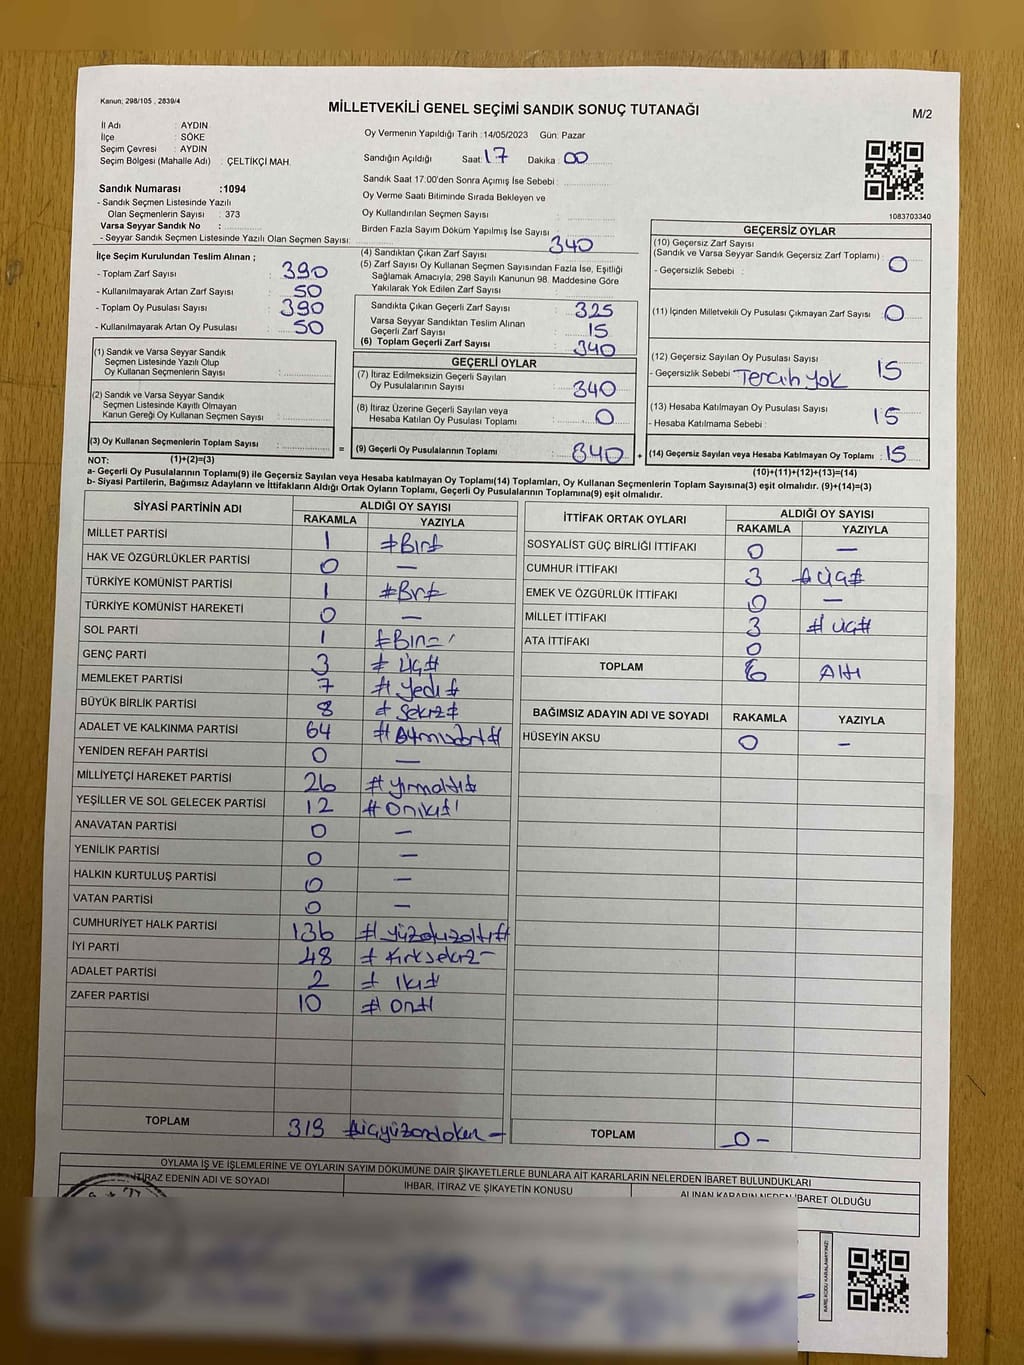 Kanun; 298/105 , 2839/4
MİLLETVEKİLİ GENEL SEÇİMİ SANDIK SONUÇ TUTANAĞI
M/2
İl Adı : AYDIN
İlçe : SÖKE
Seçim Çevresi : AYDIN
Seçim Bölgesi (Mahalle Adı) : ÇELTİKÇİ MAH.
Oy Vermenin Yapıldığı Tarih :14/05/2023 Gün: Pazar
Sandığın Açıldığı Saat: 17 Dakika : 00
Sandık Saat 17.00'den Sonra Açımış İse Sebebi :
Oy Verme Saati Bitiminde Sırada Bekleyen ve
Oy Kullandırılan Seçmen Sayısı :
Birden Fazla Sayım Döküm Yapılmış İse Sayısı :
Sandık Numarası :1094
- Sandık Seçmen Listesinde Yazılı
Olan Seçmenlerin Sayısı : 373
Varsa Seyyar Sandık No :
- Seyyar Sandık Seçmen Listesinde Yazılı Olan Seçmen Sayısı:
1083703340
İlçe Seçim Kurulundan Teslim Alınan ;
- Toplam Zarf Sayısı : 390
- Kullanılmayarak Artan Zarf Sayısı : 50
- Toplam Oy Pusulası Sayısı : 390
- Kullanılmayarak Artan Oy Pusulası : 50
(1) Sandık ve Varsa Seyyar Sandık
Seçmen Listesinde Yazılı Olup
Oy Kullanan Seçmenlerin Sayısı :
(2) Sandık ve Varsa Seyyar Sandık
Seçmen Listesinde Kayıtlı Olmayan
Kanun Gereği Oy Kullanan Seçmen Sayısı :
(3) Oy Kullanan Seçmenlerin Toplam Sayısı :
(1)+(2)=(3)
(4) Sandıktan Çıkan Zarf Sayısı : 340
(5) Zarf Sayısı Oy Kullanan Seçmen Sayısından Fazla İse, Eşitliği
Sağlamak Amacıyla, 298 Sayılı Kanunun 98. Maddesine Göre
Yakılarak Yok Edilen Zarf Sayısı :
Sandıkta Çıkan Geçerli Zarf Sayısı : 325
Varsa Seyyar Sandıktan Teslim Alınan
Geçerli Zarf Sayısı : 15
(6) Toplam Geçerli Zarf Sayısı : 340
GEÇERLİ OYLAR
(7) İtiraz Edilmeksizin Geçerli Sayılan
Oy Pusulalarının Sayısı : 340
(8) İtiraz Üzerine Geçerli Sayılan veya
Hesaba Katılan Oy Pusulası Toplamı : 0
= (9) Geçerli Oy Pusulalarının Toplamı : 340 +
GEÇERSİZ OYLAR
(10) Geçersiz Zarf Sayısı
(Sandık ve Varsa Seyyar Sandık Geçersiz Zarf Toplamı) : 0
- Geçersizlik Sebebi :
(11) İçinden Milletvekili Oy Pusulası Çıkmayan Zarf Sayısı : 0
(12) Geçersiz Sayılan Oy Pusulası Sayısı : 15
- Geçersizlik Sebebi : Tercih Yok
(13) Hesaba Katılmayan Oy Pusulası Sayısı : 15
- Hesaba Katılmama Sebebi :
(14) Geçersiz Sayılan veya Hesaba Katılmayan Oy Toplamı : 15
(10)+(11)+(12)+(13)=(14)
NOT:
a- Geçerli Oy Pusulalarının Toplamı(9) ile Geçersiz Sayılan veya Hesaba katılmayan Oy Toplamı(14) Toplamları, Oy Kullanan Seçmenlerin Toplam Sayısına(3) eşit olmalıdır. (9)+(14)=(3)
b- Siyasi Partilerin, Bağımsız Adayların ve İttifakların Aldığı Ortak Oyların Toplamı, Geçerli Oy Pusulalarının Toplamına(9) eşit olmalıdır.
SİYASİ PARTİNİN ADI ALDIĞI OY SAYISI
RAKAMLA YAZIYLA
MİLLET PARTİSİ 1 #Bir#
HAK VE ÖZGÜRLÜKLER PARTİSİ 0 —
TÜRKİYE KOMÜNİST PARTİSİ 1 #Bir#
TÜRKİYE KOMÜNİST HAREKETİ 0 —
SOL PARTİ 1 #Bir#
GENÇ PARTİ 3 # Üç#
MEMLEKET PARTİSİ 7 # Yedi #
BÜYÜK BİRLİK PARTİSİ 8 # Sekiz#
ADALET VE KALKINMA PARTİSİ 64 #Atmışdört#
YENİDEN REFAH PARTİSİ 0 —
MİLLİYETÇİ HAREKET PARTİSİ 26 #Yirmaltı#
YEŞİLLER VE SOL GELECEK PARTİSİ 12 #Oniki#
ANAVATAN PARTİSİ 0 —
YENİLİK PARTİSİ 0 —
HALKIN KURTULUŞ PARTİSİ 0 —
VATAN PARTİSİ 0 —
CUMHURİYET HALK PARTİSİ 136 # Yüzotuzaltı#
İYİ PARTİ 48 # Kırksekiz—
ADALET PARTİSİ 2 # İki#
ZAFER PARTİSİ 10 # On#
TOPLAM 319 #üçyüzondoken —
İTTİFAK ORTAK OYLARI ALDIĞI OY SAYISI
RAKAMLA YAZIYLA
SOSYALİST GÜÇ BİRLİĞİ İTTİFAKI 0 —
CUMHUR İTTİFAKI 3 #Üç#
EMEK VE ÖZGÜRLÜK İTTİFAKI 0 —
MİLLET İTTİFAKI 3 # Üç#
ATA İTTİFAKI 0
TOPLAM 6 Altı
BAĞIMSIZ ADAYIN ADI VE SOYADI RAKAMLA YAZIYLA
HÜSEYİN AKSU 0 —
TOPLAM 0 —
OYLAMA İŞ VE İŞLEMLERİNE VE OYLARIN SAYIM DÖKÜMÜNE DAİR ŞİKAYETLERLE BUNLARA AİT KARARLARIN NELERDEN İBARET BULUNDUKLARI
İTİRAZ EDENİN ADI VE SOYADI İHBAR, İTİRAZ VE ŞİKAYETİN KONUSU ALINAN KARARIN NEDEN İBARET OLDUĞU
KARE KODU KARALAMAYINIZ!